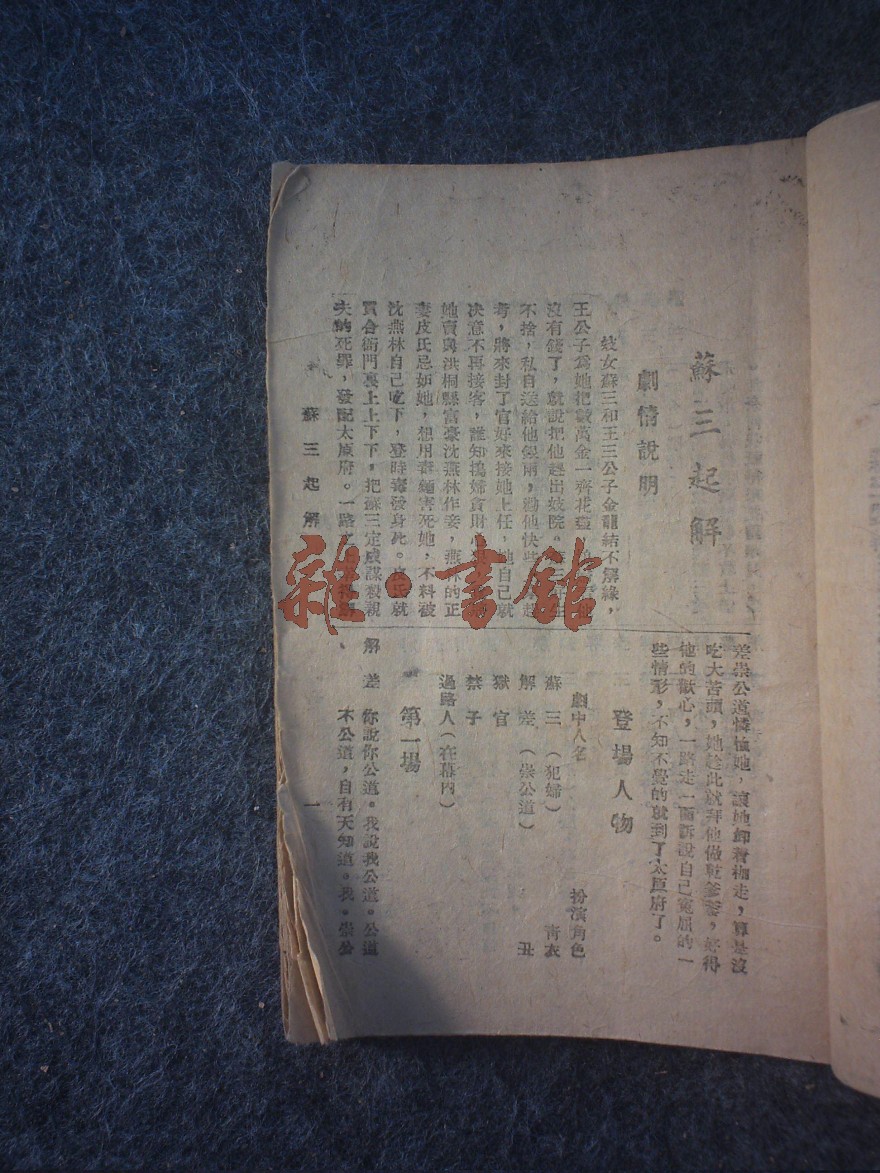 蘇三起解
劇情說明
妓女蘇三和王三公子金龍結不解緣，
王公子爲她把數萬金一齊花盡
沒有錢了，就說把他趕出妓院。
不捨，私自送給他銀兩，勸他快些
考，將來封了官好來接她上任，她自己就
決意不再接客，誰知鴇婦貪財
她賣與洪桐縣富豪沈燕林作妾，燕林的正
妻皮氏忌妒她，想用毒麵害死她，不料被
沈燕林自己吃下，登時毒發身死。皮氏就
買合衙門裏上上下下，把蘇三定成謀殺親
夫的死罪，發配太原府。一路
差崇公道憐恤她，讓她卸着枷走，算是沒
吃大苦頭，她趁此就拜他做乾爹爹，好得
他的歡心，一路走一面訴說自己冤屈的一
些情形，不知不覺的就到了太原府了。
登場人物
劇中人名 扮演角色
蘇三（犯婦） 青衣
解差（崇公道） 丑
獄官
禁子
過路人（在幕內）
第一場
解差 你說你公道。我說我公道。公道
不公道，自有天知道。我。崇公
蘇三起解
一
雜·書館